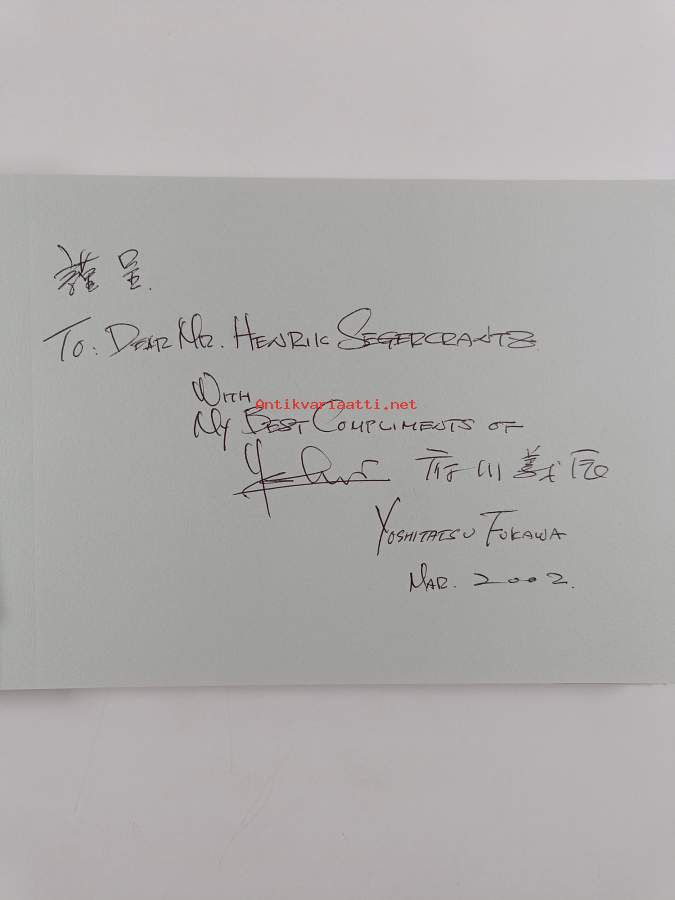 謹呈.
To: Dear Mr. Henrik Segercrantz
With
Antikvariaatti.net
My Best Compliments of
府川義辰
Yoshitatsu Fukawa
Mar. 2002.